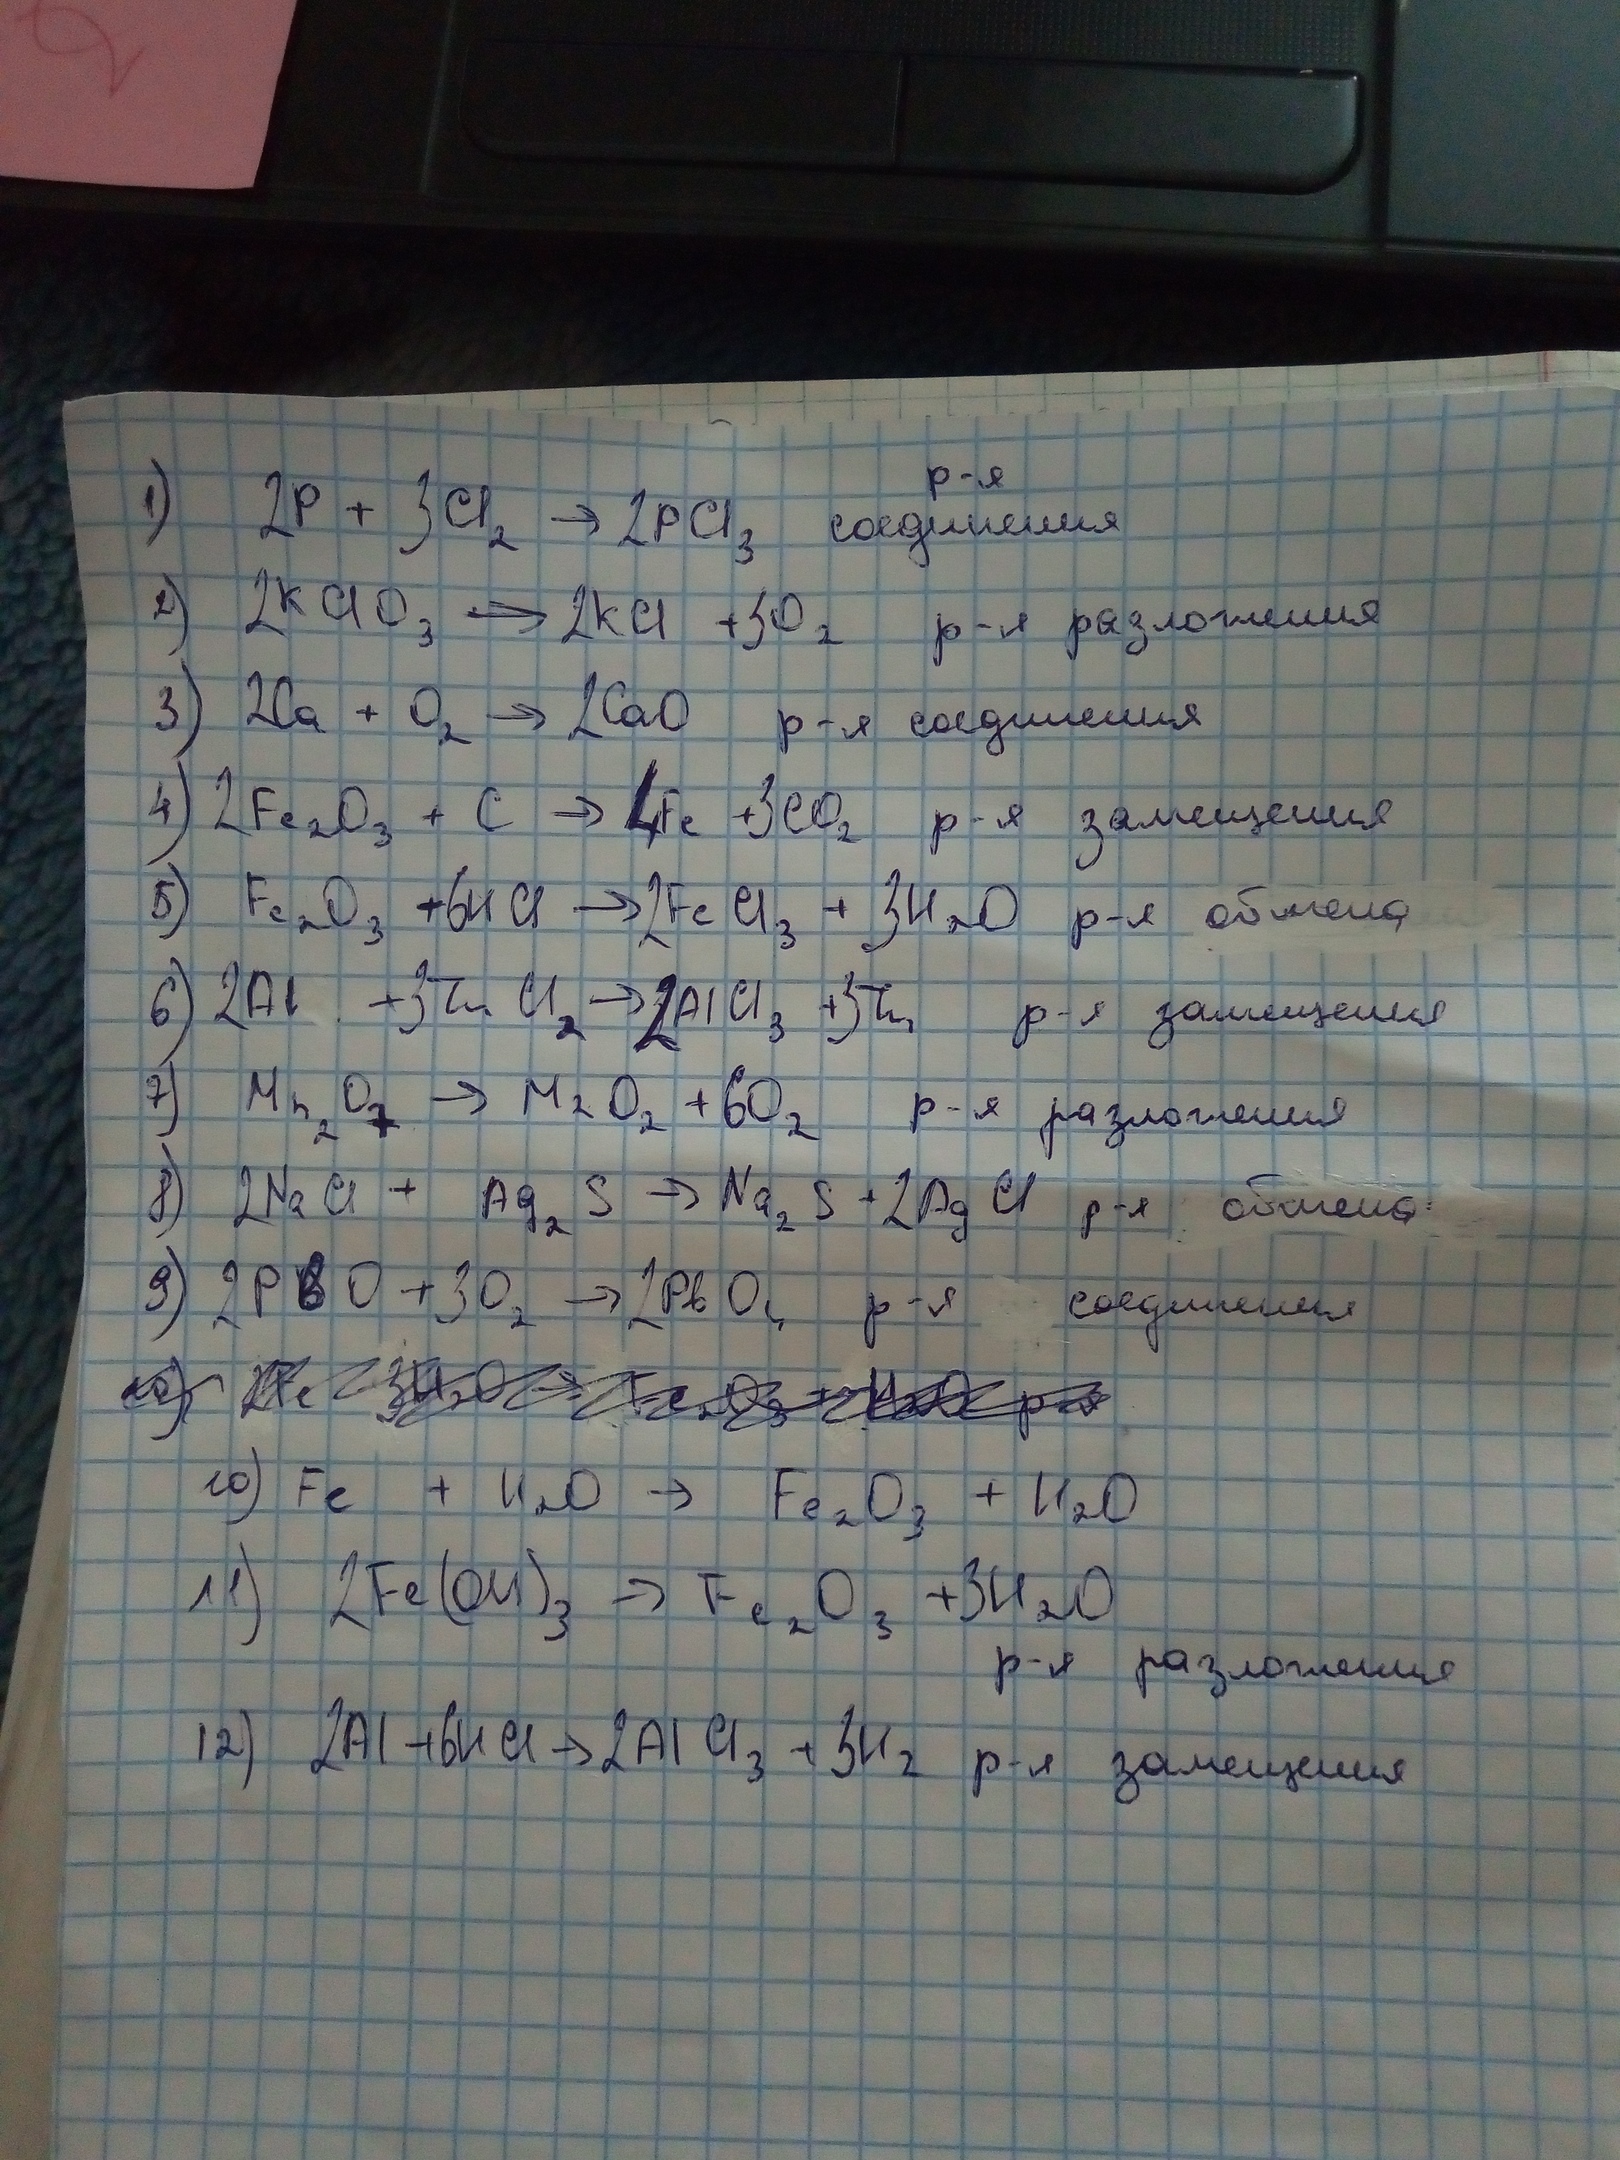 1) 2P + 3Cl₂ → 2PCl₃ р-я соединения
2) 2KClO₃ → 2KCl +3O₂ р-я разложения
3) 2Ca + O₂ → 2CaO р-я соединения
4) 2Fe₂O₃ + C → 4Fe +3CO₂ р-я замещения
5) Fe₂O₃ +6HCl → 2FeCl₃ + 3H₂O р-я обмена
6) 2Al +3Zn Cl₂ → 2AlCl₃ +3Zn р-я замещения
7) Mn₂O₇ → MnO₂ +6O₂ р-я разложения
8) 2NaCl + Ag₂S → Na₂S +2AgCl р-я обмена
9) 2PbO +3O₂ → 2PbO₄ р-я соединения
10) Fe + H₂O → Fe₂O₃ + H₂O
11) 2Fe(OH)₃ → Fe₂O₃ +3H₂O
р-я разложения
12) 2Al +6HCl → 2AlCl₃ +3H₂ р-я замещения